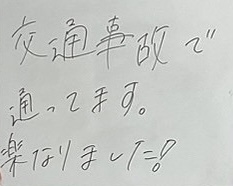 交通事故で
通ってます。
楽なりました!